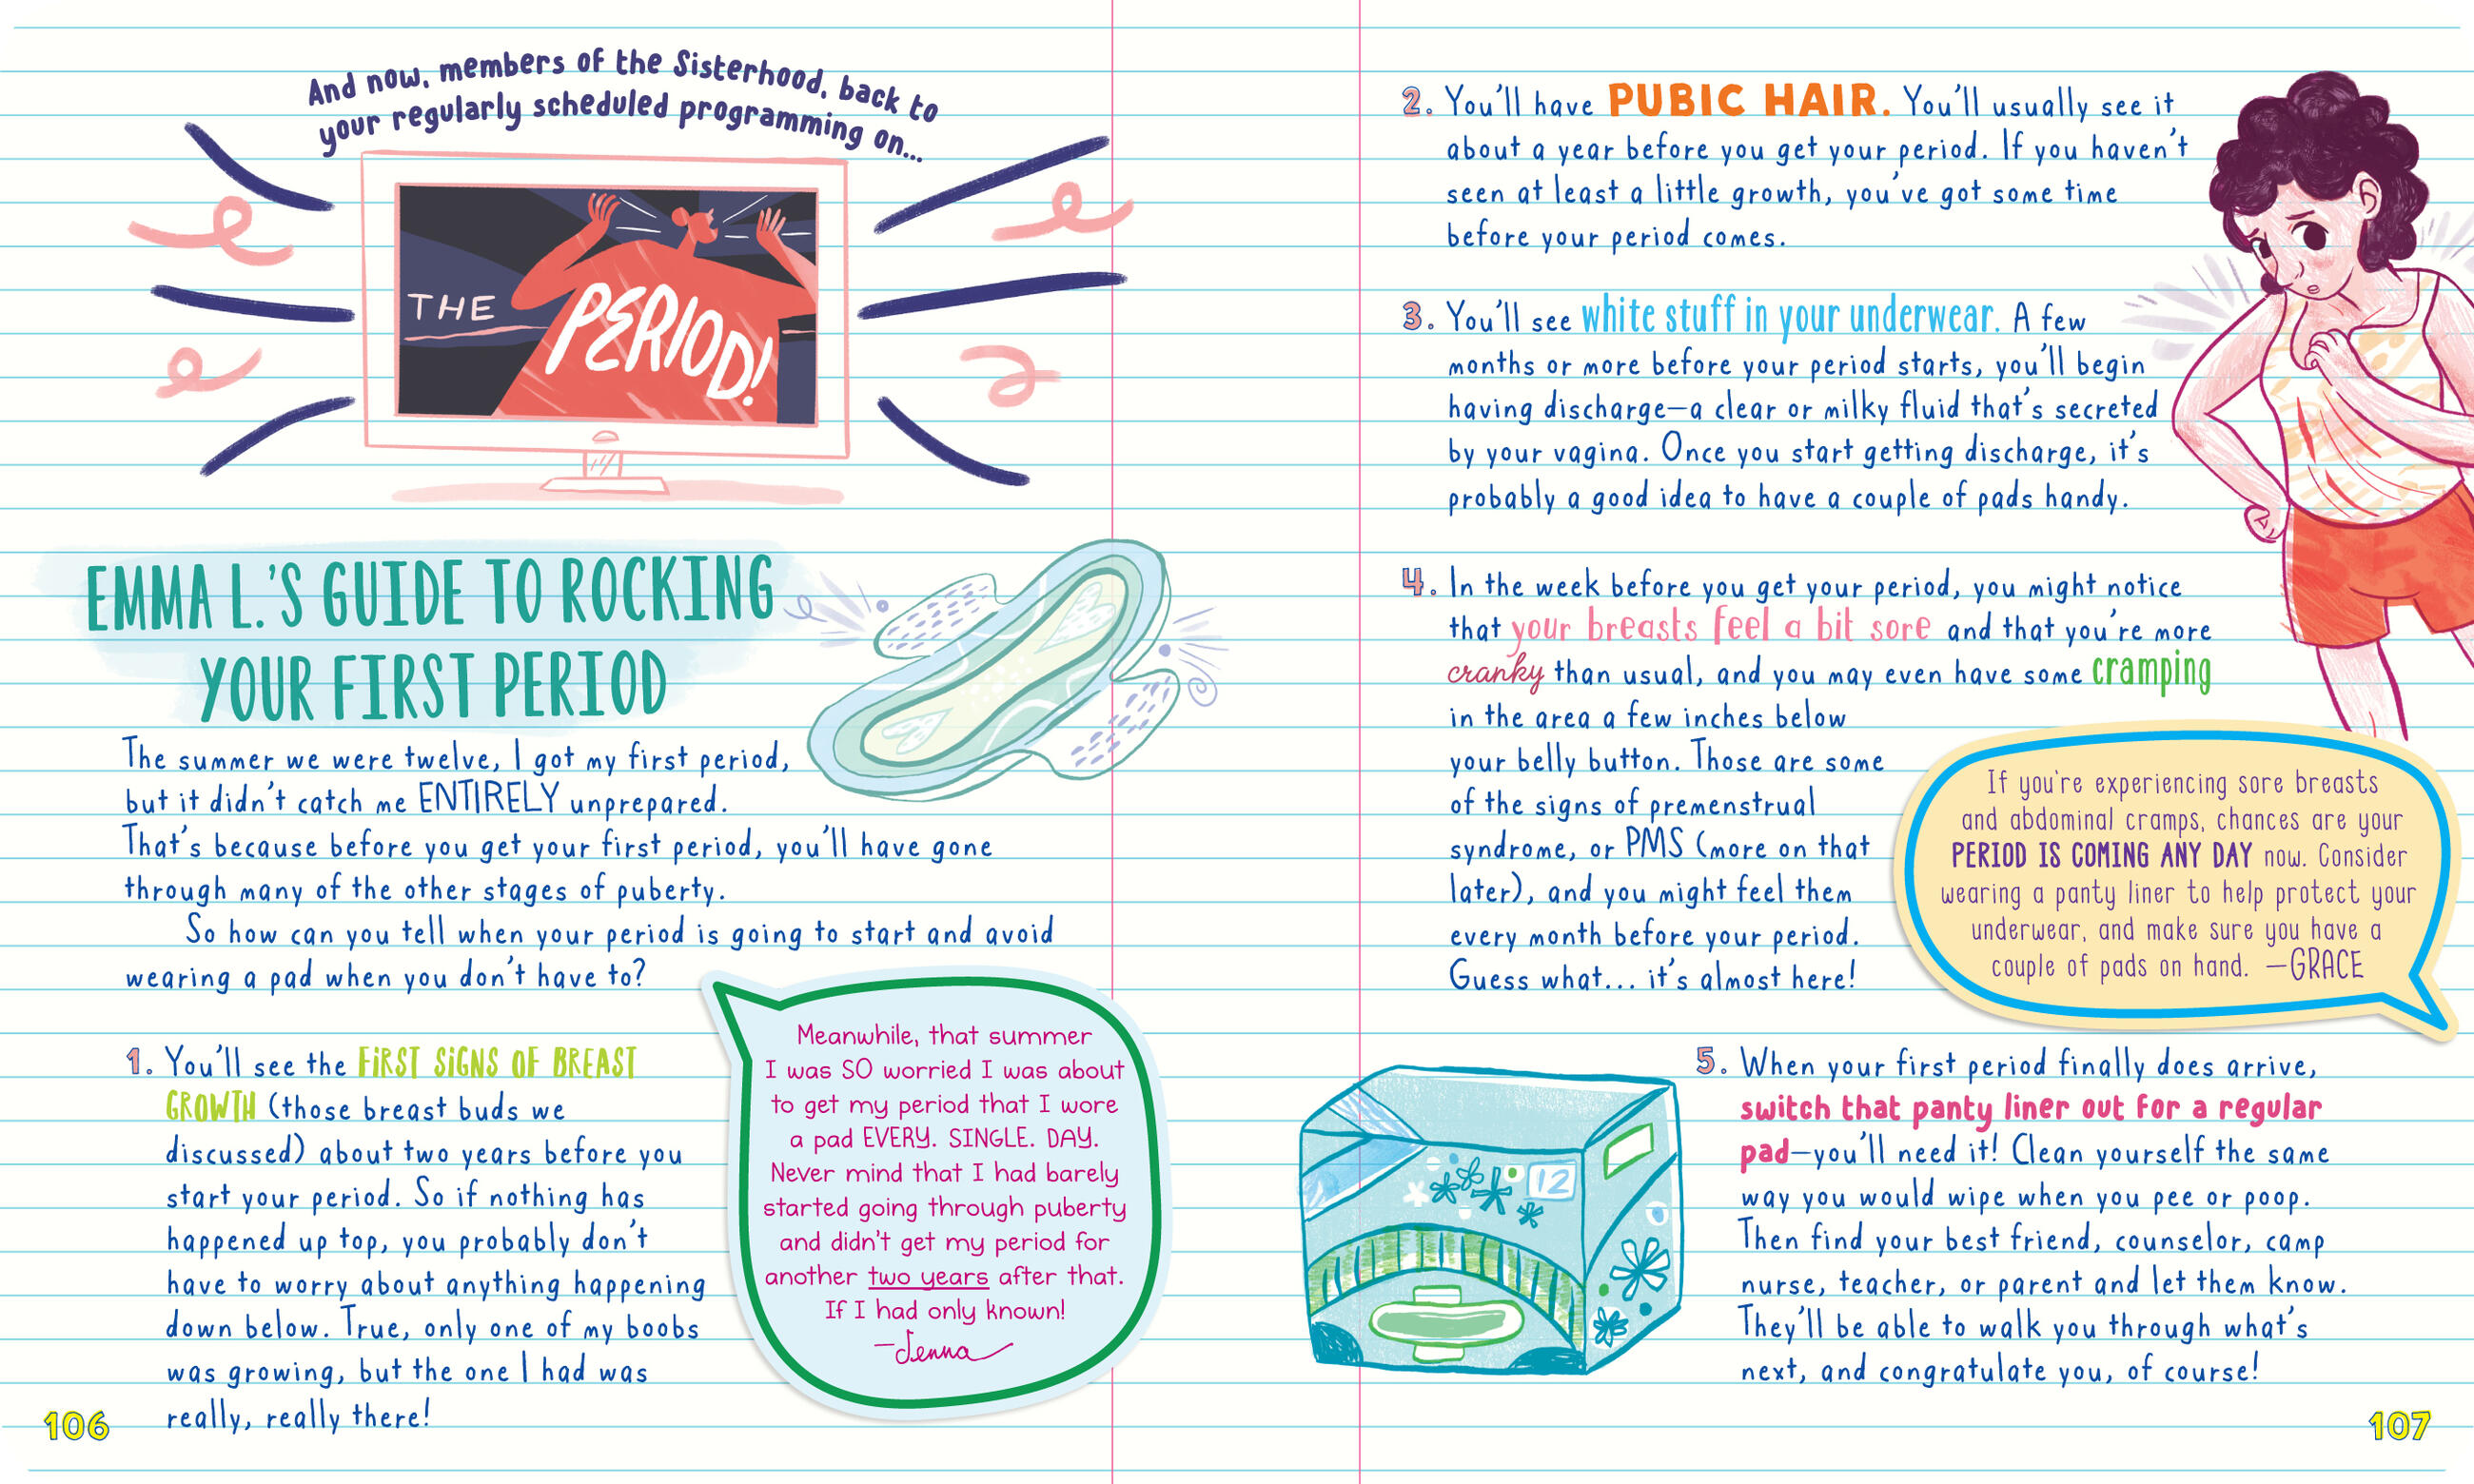 And now, members of the Sisterhood, back to
your regularly scheduled programming on...
THE
PERIOD!
EMMA L.'S GUIDE TO ROCKING
YOUR FIRST PERIOD
The summer we were twelve, I got my first period,
but it didn't catch me ENTIRELY unprepared.
That's because before you get your first period, you'll have gone
through many of the other stages of puberty.
So how can you tell when your period is going to start and avoid
wearing a pad when you don't have to?
1. You'll see the FIRST SIGNS OF BREAST
GROWTH (those breast buds we
discussed) about two years before you
start your period. So if nothing has
happened up top, you probably don't
have to worry about anything happening
down below. True, only one of my boobs
was growing, but the one I had was
really, really there!
Meanwhile, that summer
I was SO worried I was about
to get my period that I wore
a pad EVERY. SINGLE. DAY.
Never mind that I had barely
started going through puberty
and didn't get my period for
another two years after that.
If I had only known!
—Jenna
106
2. You'll have PUBIC HAIR. You'll usually see it
about a year before you get your period. If you haven't
seen at least a little growth, you've got some time
before your period comes.
3. You'll see white stuff in your underwear. A few
months or more before your period starts, you'll begin
having discharge—a clear or milky fluid that's secreted
by your vagina. Once you start getting discharge, it's
probably a good idea to have a couple of pads handy.
4. In the week before you get your period, you might notice
that your breasts feel a bit sore and that you're more
cranky than usual, and you may even have some cramping
in the area a few inches below
your belly button. Those are some
of the signs of premenstrual
syndrome, or PMS (more on that
later), and you might feel them
every month before your period.
Guess what... it's almost here!
If you're experiencing sore breasts
and abdominal cramps, chances are your
PERIOD IS COMING ANY DAY now. Consider
wearing a panty liner to help protect your
underwear, and make sure you have a
couple of pads on hand. —GRACE
12
5. When your first period finally does arrive,
switch that panty liner out for a regular
pad—you'll need it! Clean yourself the same
way you would wipe when you pee or poop.
Then find your best friend, counselor, camp
nurse, teacher, or parent and let them know.
They'll be able to walk you through what's
next, and congratulate you, of course!
107